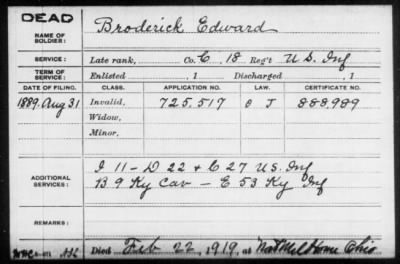 DEAD
NAME OF SOLDIER: Broderick Edward
SERVICE: Late rank, Co. C, 18 Reg't U.S. Inf
TERM OF SERVICE: Enlisted , 1 Discharged , 1
DATE OF FILING. CLASS. APPLICATION NO. LAW. CERTIFICATE NO.
1889. Aug 31 Invalid, 725,517 J 888,989
Widow,
Minor,
ADDITIONAL SERVICES: I 11 – D 22 & C 27 U.S. Inf
B 9 Ky Cav – E 53 Ky Inf
REMARKS:
Died Feb 22, 1919, at Nat Mil Home Ohio